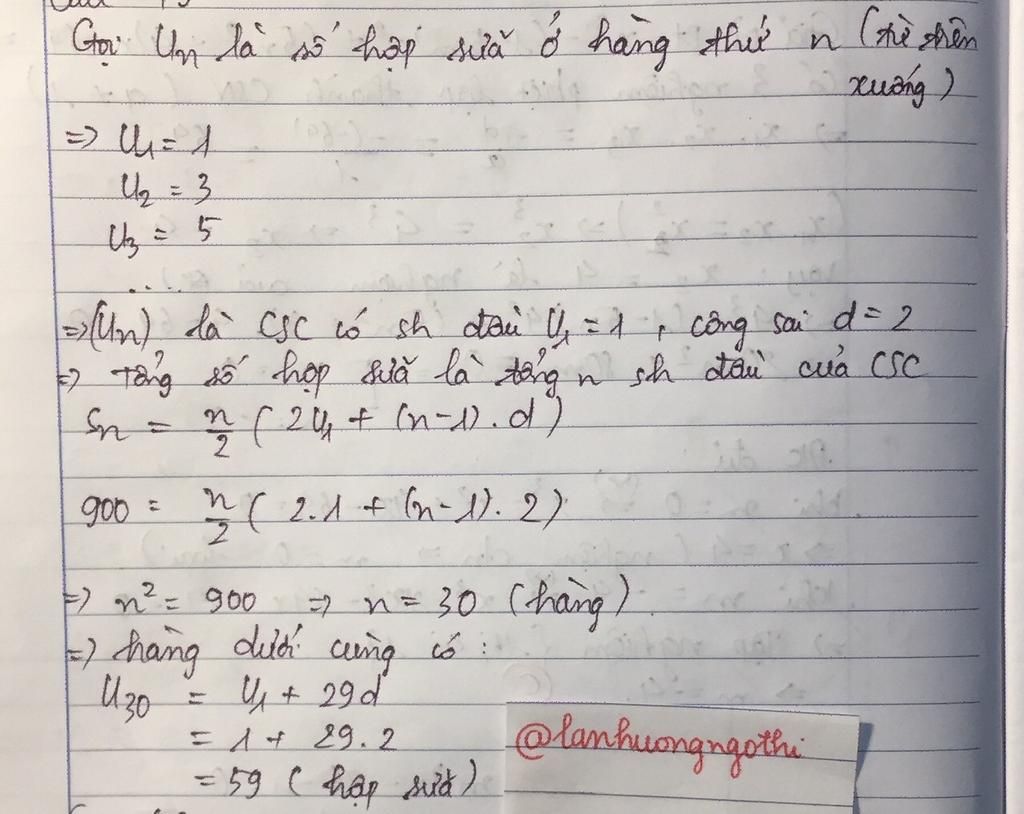 Gọi Un là số hộp sữa ở hàng thứ n (từ trên
xuống)
=> U1 = 1
U2 = 3
U3 = 5
.....
=> (Un) là CSC có sh đầu U1 = 1 , công sai d = 2
=> tổng số hộp sữa là tổng n sh đầu của CSC
Sn = n/2 ( 2U1 + (n-1) . d )
900 = n/2 ( 2.1 + (n-1) . 2 )
=> n² = 900 => n = 30 (hàng)
=> hàng dưới cùng có :
U30 = U1 + 29d
= 1 + 29.2
= 59 ( hộp sữa )
@lanhuongngothi